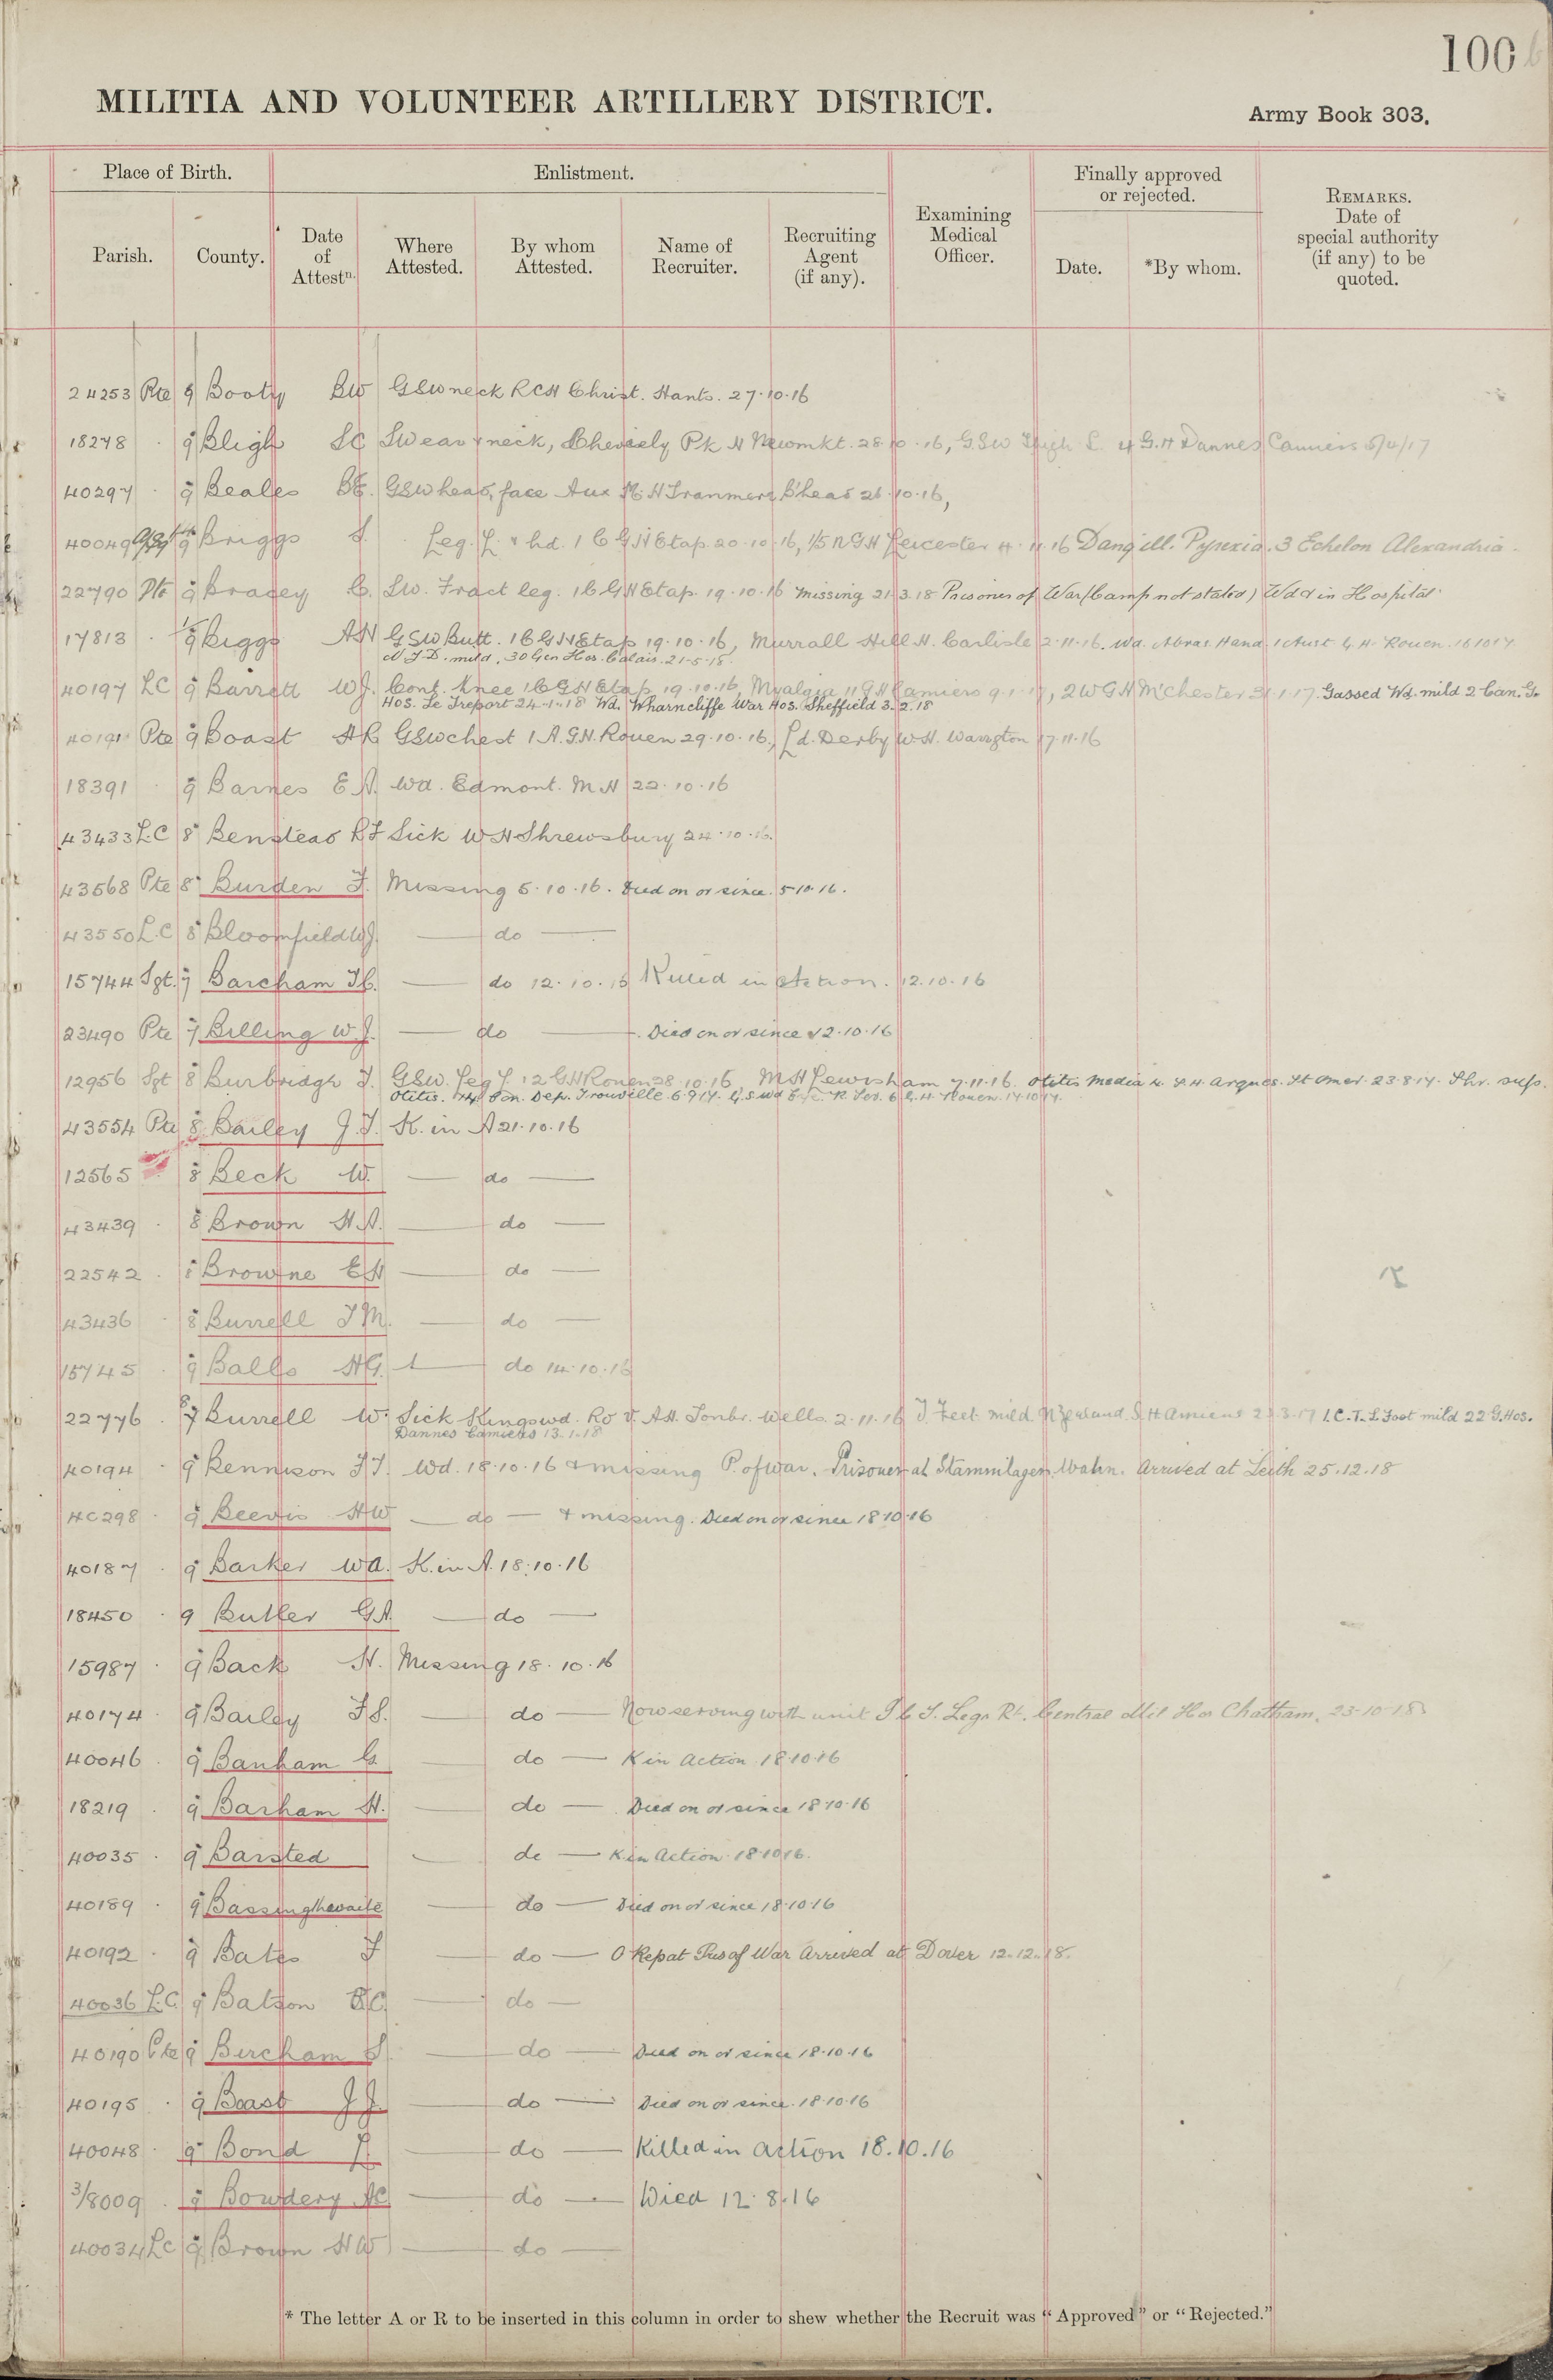 100
MILITIA AND VOLUNTEER ARTILLERY DISTRICT.
Army Book 303.
Place of Birth.
Enlistment.
Finally approved or rejected.
Parish.
County.
Date of Attestn.
Where Attested.
By whom Attested.
Name of Recruiter.
Recruiting Agent (if any).
Examining Medical Officer.
Date.
*By whom.
REMARKS. Date of special authority (if any) to be quoted.
24253 Pte 9 Booty BW GSW neck RCH Christ. Hants. 27.10.16
18278 . 9 Bligh SC SW ear & neck, Cheveley Pk H Newmkt. 28.10.16, GSW Thigh L. 4 G.H Dannes Camiers 5/4/17
40297 . 9 Beales GSW head, face Aux M. H Tranmere B'head 26.10.16,
40049 9 Briggs S. Leg. L & hd. 1 C G H Etap. 20.10.16, 1/5 N G H Leicester 4.11.16 Dang ill. Pyrexia. 3 Echelon Alexandria.
22790 Pte 9 Bracey C. SW. Fract leg. 1 C G H Etap. 19.10.16 Missing 21.3.18 Prisoner of War (Camp not stated) Wdd in Hospital
17813 . 9 Biggs AH GSW Butt. 1 C G H Etap 19.10.16, Murrall Hill H. Carlisle 2.11.16. Wd. Abras. Hand 1 Aust G.H. Rouen. 16.10.17
N.Y.D. mild, 30 Gen Hos. Calais. 21-5-18.
40197 LC 9 Barrett WJ. Cont. Knee 1 C G H Etap 19.10.16, Myalgia 11 G H Camiers 9.1.17, 2 W G H M'Chester 31.1.17. Gassed Wd. mild 2 Can. G.
Hos. Le Treport 24-1-18 Wd. Wharncliffe War Hos. Sheffield 3.2.18
40191 Pte 9 Boast AR GSW chest 1 A.G.H. Rouen 29.10.16, Ld. Derby W.H. Warrgton 17.11.16
18391 . 9 Barnes E A. Wd. Edmont. M H 22.10.16
43433 L.C 8 Benstead RF Sick W H Shrewsbury 24.10.16.
43568 Pte 8 Burden F. Missing 5.10.16. Died on or since 5.10.16.
43550 L.C 8 Bloomfield WJ. — do —
15744 Sgt. 7 Barcham — do 12.10.16 Killed in Action. 12.10.16
23490 Pte 7 Billing W.J. — do — Died on or since 12.10.16
12956 Sgt 8 Burbridge J. GSW. Leg L. 12 G H Rouen 28.10.16, M H Lewisham 7.11.16. Otitis Media 4. S.H. Arques. St Omer. 23.8.17.
Otitis. Con. Dep. Trouville 6.9.17. G.S.Wd 6 G.H. Rouen. 14.10.17.
43554 Pte 8 Bailey J.T. K. in A 21.10.16
12565 8 Beck W. — do —
43439 . 8 Brown H.A. — do —
22542 . 8 Browne EH — do —
43436 . 8 Burrell — do —
15745 . 9 Balls HG. — do 14.10.16
22776 . 7 Burrell W. Sick Kingswd. Ro V. AH. Tonbr. Wells. 2.11.16 T. Feet. mild N Zealand S H Amiens 23.3.17 I.C.T. L Foot mild 22 G. Hos.
Dannes Camiers 13-1-18
40194 . 9 Bennison Wd. 18.10.16 & missing P. of War. Prisoner at Stammlager. Wahn. Arrived at Leith 25.12.18
40298 . 9 Beevis HW — do — & missing. Died on or since 18.10.16
40187 . 9 Barker WA. K. in A. 18.10.16
18450 . 9 Butler GA. — do —
15987 . 9 Back H. Missing 18.10.16
40174 . 9 Bailey — do — Now serving with unit Central Mil Hos Chatham. 23-10-18
40046 . 9 Banham G — do — K in Action 18.10.16
18219 . 9 Barham H. — do — Died on or since 18.10.16
40035 . 9 Barsted — do — K in Action 18.10.16.
40189 . 9 Bassingthwaite — do — Died on or since 18.10.16
40192 . 9 Bates F — do — Repat Pris of War Arrived at Dover 12.12.18.
40036 L.C. 9 Batson — do —
40190 Pte 9 Bircham S — do — Died on or since 18.10.16
40195 . 9 Boast J J. — do — Died on or since. 18.10.16
40048 . 9 Bond — do — Killed in action 18.10.16
3/8009 . 9 Bowdery AC — do — Died 12.8.16
40034 LC 9 Brown HW — do —
* The letter A or R to be inserted in this column in order to shew whether the Recruit was "Approved" or "Rejected."